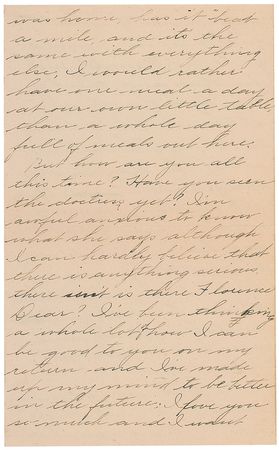 was home, has it "beat
a mile, and its the
same with everything
else; I would rather
have one meal a day
at our own little table,
than a whole day
full of meals out here;
But how are you all
this time? Have you seen
the doctress yet? I'm
awful anxious to know
what she says although
I can hardly
there is anything serious,
there isent is there Florence
Dear? I've been thinking
a whole lot of how I can
be good to you on my
return and I've made
up my mind to be better
in the future; I love you
so much and I want